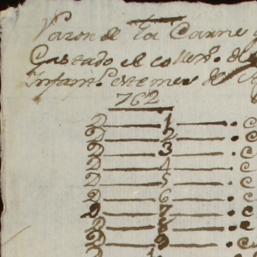 Razon de la Carne q
Gastado el collexo. de
infant.s este mes de
762
2 1 C
2 2 C
2 3 C
2 4 C
2 5 C
2 6 C
2 7 C
2 8 C
2 9 C
2 1